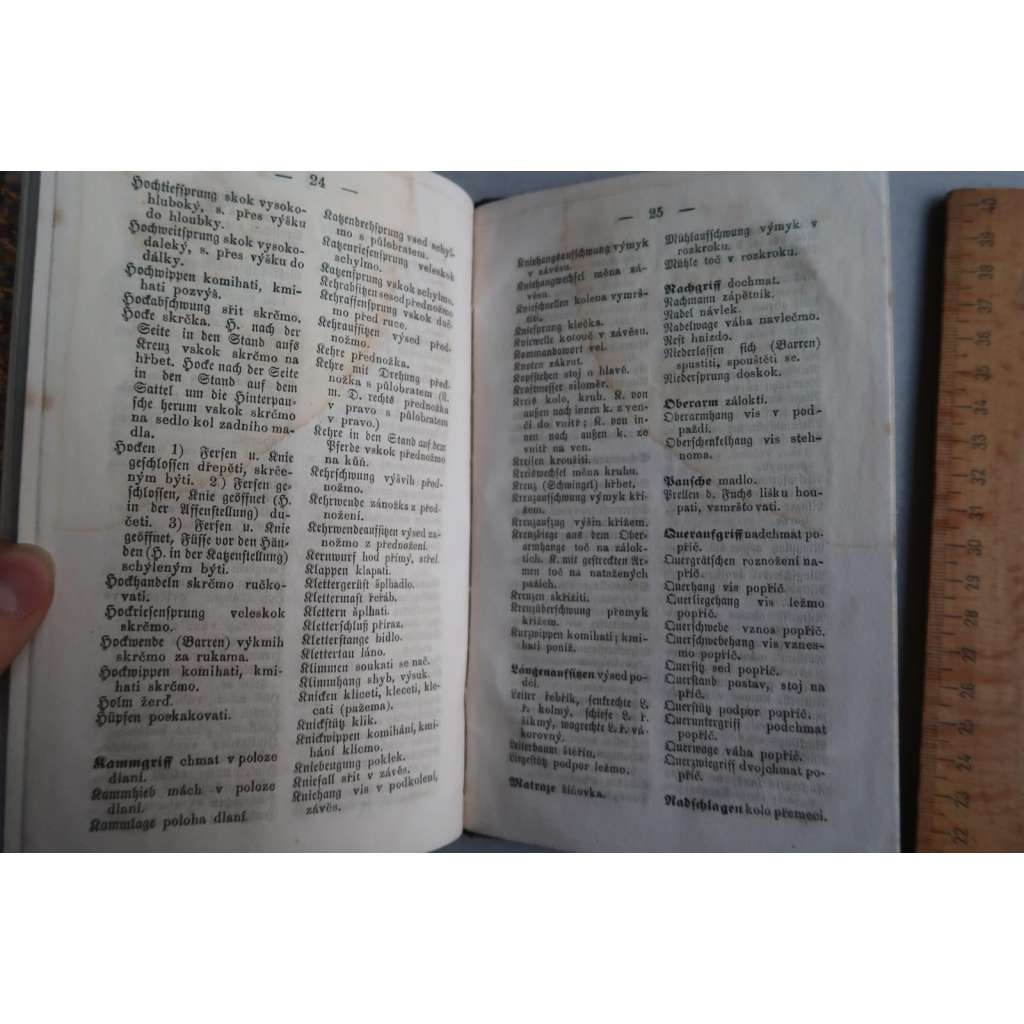 — 24 —
Hochtiefsprung skok vysoko-
hluboký, s. přes výšku
do hloubky.
Hochweitsprung skok vysoko-
daleký, s. přes výšku do
dálky.
Hochwippen komihati, kmi-
hati pozvýš.
Hockabschwung sřit skrčmo.
Hocke skrčka. H. nach der
Seite in den Stand aufs
Kreuz vskok skrčmo na
hřbet. Hocke nach der Seite
in den Stand auf dem
Sattel um die Hinterpau-
sche herum vskok skrčmo
na sedlo kol zadního ma-
dla.
Hocken 1) Fersen u. Knie
geschlossen dřepěti, skrče-
ným býti. 2) Fersen ge-
schlossen, Knie geöffnet (H.
in der Affenstellung) du-
četi. 3) Fersen u. Knie
geöffnet, Füsse vor den Hän-
den (H. in der Katzenstellung)
schýleným býti.
Hockhandeln skrčmo ručko-
vati.
Hockriesensprung veleskok
skrčmo.
Hockwende (Barren) výkmih
skrčmo za rukama.
Hockwippen komihati, kmi-
hati skrčmo.
Holm žerď.
Hüpfen poskakovati.
Kammgriff chmat v poloze
dlaní.
Kammhieb mách v poloze
dlaní.
Kammlage poloha dlaní.
Katzendrehsprung vsed schyl-
mo s půlobratem.
Katzenriesensprung veleskok
schylmo.
Katzensprung vskok schylmo.
Kehrabsitzen sesed přednožmo
Kehraffensprung vskok duč-
mo před ruce.
Kehraufsitzen výsed před-
nožmo.
Kehre přednožka.
Kehre mit Drehung před-
nožka s půlobratem (K.
m. D. rechts přednožka
v pravo s půlobratem
v pravo.)
Kehre in den Stand auf dem
Pferde vskok přednožmo
na kůň.
Kehrschwung výšvih před-
nožmo.
Kehrwende zánožka z před-
nožení.
Kehrwendeaufsitzen výsed zá-
nožmo z přednožení.
Kernwurf hod přímý, střel.
Klappen klapati.
Klettergerüst šplhadlo.
Klettermast řeřáb.
Klettern šplhati.
Kletterschluß příraz.
Kletterstange bidlo.
Klettertau láno.
Klimmen soukati se nač.
Klimmhang shyb, výsuk.
Knicken kliceti, kleceti, kle-
cati (pažema).
Knickstütz klik.
Knickwippen komihání, kmi-
hání klicmo.
Kniebeugung poklek.
Kniefall sřit v závěs.
Kniehang vis v podkolení,
závěs.
— 25 —
Kniehangaufschwung výmyk
v závěsu.
Kniehangwechsel měna zá-
věsu.
Knieschnellen kolena vymrš-
titi.
Kniesprung klečka.
Kniewelle kotouč v závěsu.
Kommandowort vel.
Knoten zákrut.
Kopfstehen stoj o hlavě.
Kraftmesser siloměr.
Kreis kolo, kruh. K. von
außen nach innen k. z ven-
čí do vnitř; K. von in-
nen nach außen k. ze
vnitř na ven.
Kreisen kroužiti.
Kreiswechsel měna kruhu.
Kreuz (Schwingel) hřbet.
Kreuzaufschwung výmyk kří-
žem.
Kreuzaufzug výšin křížem.
Kreuzbiege aus dem Ober-
armhange toč na zálok-
tích. K. mit gestreckten Ar-
men toč na natažených
pažích.
Kreuzen skřížiti.
Kreuzüberschwung přemyk
křížem.
Kurzwippen komihati; kmi-
hati poníž.
Längenaufsitzen výsed po-
děl.
Leiter řebřík, senkrechte L.
ř. kolmý, schiefe L. ř.
šikmý, wagrechte L. ř. vá-
korovný.
Leiterbaum štěřín.
Liegestütz podpor ležmo.
Matraze žíňovka.
Mühlaufschwung výmyk v
rozkroku.
Mühle toč v rozkroku.
Nachgriff dochmat.
Nachmann zápětník.
Nadel návlek.
Nadelwage váha navlečmo.
Nest hnízdo.
Niederlassen sich (Barren)
spustiti, spouštěti se.
Niedersprung doskok.
Oberarm záloktí.
Oberarmhang vis v pod-
paždí.
Oberschenkelhang vis steh-
noma.
Pausche madlo.
Prellen d. Fuchs lišku hou-
pati, vzmršťovati.
Queraufgriff nadchmat po-
příč.
Quergrätschen roznožení na-
příč.
Querhang vis popříč.
Querliegehang vis ležmo
popříč.
Querschwebe vznos popříč.
Querschwebehang vis vznes-
mo popříč.
Quersitz sed popříč.
Querstand postav, stoj na
příč.
Querstütz podpor popříč.
Queruntergriff podchmat
popříč.
Querwage váha popříč.
Querzwiegriff dvojchmat po-
příč.
Radschlagen kolo přemecí.
22 23 24 25 26 27 28 29 30 31 32 33 34 35 36 37 38 39 40